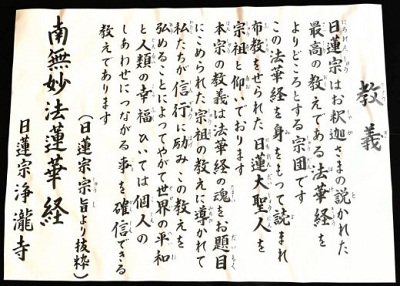 教義
日蓮宗はお釈迦さまの説かれた
最高の教えである法華経を
よりどころとする宗団です
この法華経を身をもって読まれ
布教をせられた日蓮大聖人を
宗祖と仰いでおります
本宗の教義は法華経の魂をお題目
にこめられた宗祖の教えに導かれて
私たちが信行に励みこの教えを
弘めることによってやがて世界の平和
と人類の幸福ひいては個人の
しあわせにつながる事を確信できる
教えであります
(日蓮宗宗旨より抜粋)
南無妙法蓮華経
日蓮宗浄瀧寺